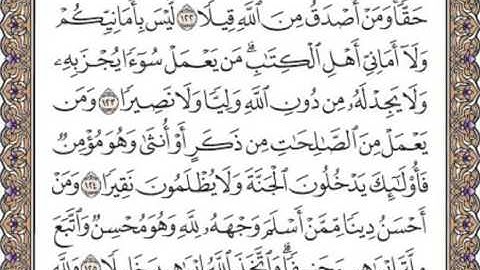 حَقًّا وَمَنْ أَصْدَقُ مِنَ ٱللَّهِ قِيلًا ١٢٢ لَّيْسَ بِأَمَانِيِّكُمْ
وَلَآ أَمَانِيِّ أَهْلِ ٱلْكِتَٰبِ ۗ مَن يَعْمَلْ سُوٓءًا يُجْزَ بِهِۦ
وَلَا يَجِدْ لَهُۥ مِن دُونِ ٱللَّهِ وَلِيًّا وَلَا نَصِيرًا ١٢٣ وَمَن
يَعْمَلْ مِنَ ٱلصَّٰلِحَٰتِ مِن ذَكَرٍ أَوْ أُنثَىٰ وَهُوَ مُؤْمِنٌ
فَأُو۟لَٰٓئِكَ يَدْخُلُونَ ٱلْجَنَّةَ وَلَا يُظْلَمُونَ نَقِيرًا ١٢٤ وَمَنْ
أَحْسَنُ دِينًا مِّمَّنْ أَسْلَمَ وَجْهَهُۥ لِلَّهِ وَهُوَ مُحْسِنٌ وَٱتَّبَعَ
مِلَّةَ إِبْرَٰهِيمَ حَنِيفًا ۗ وَٱتَّخَذَ ٱللَّهُ إِبْرَٰهِيمَ خَلِيلًا ١٢٥ وَلِلَّهِ